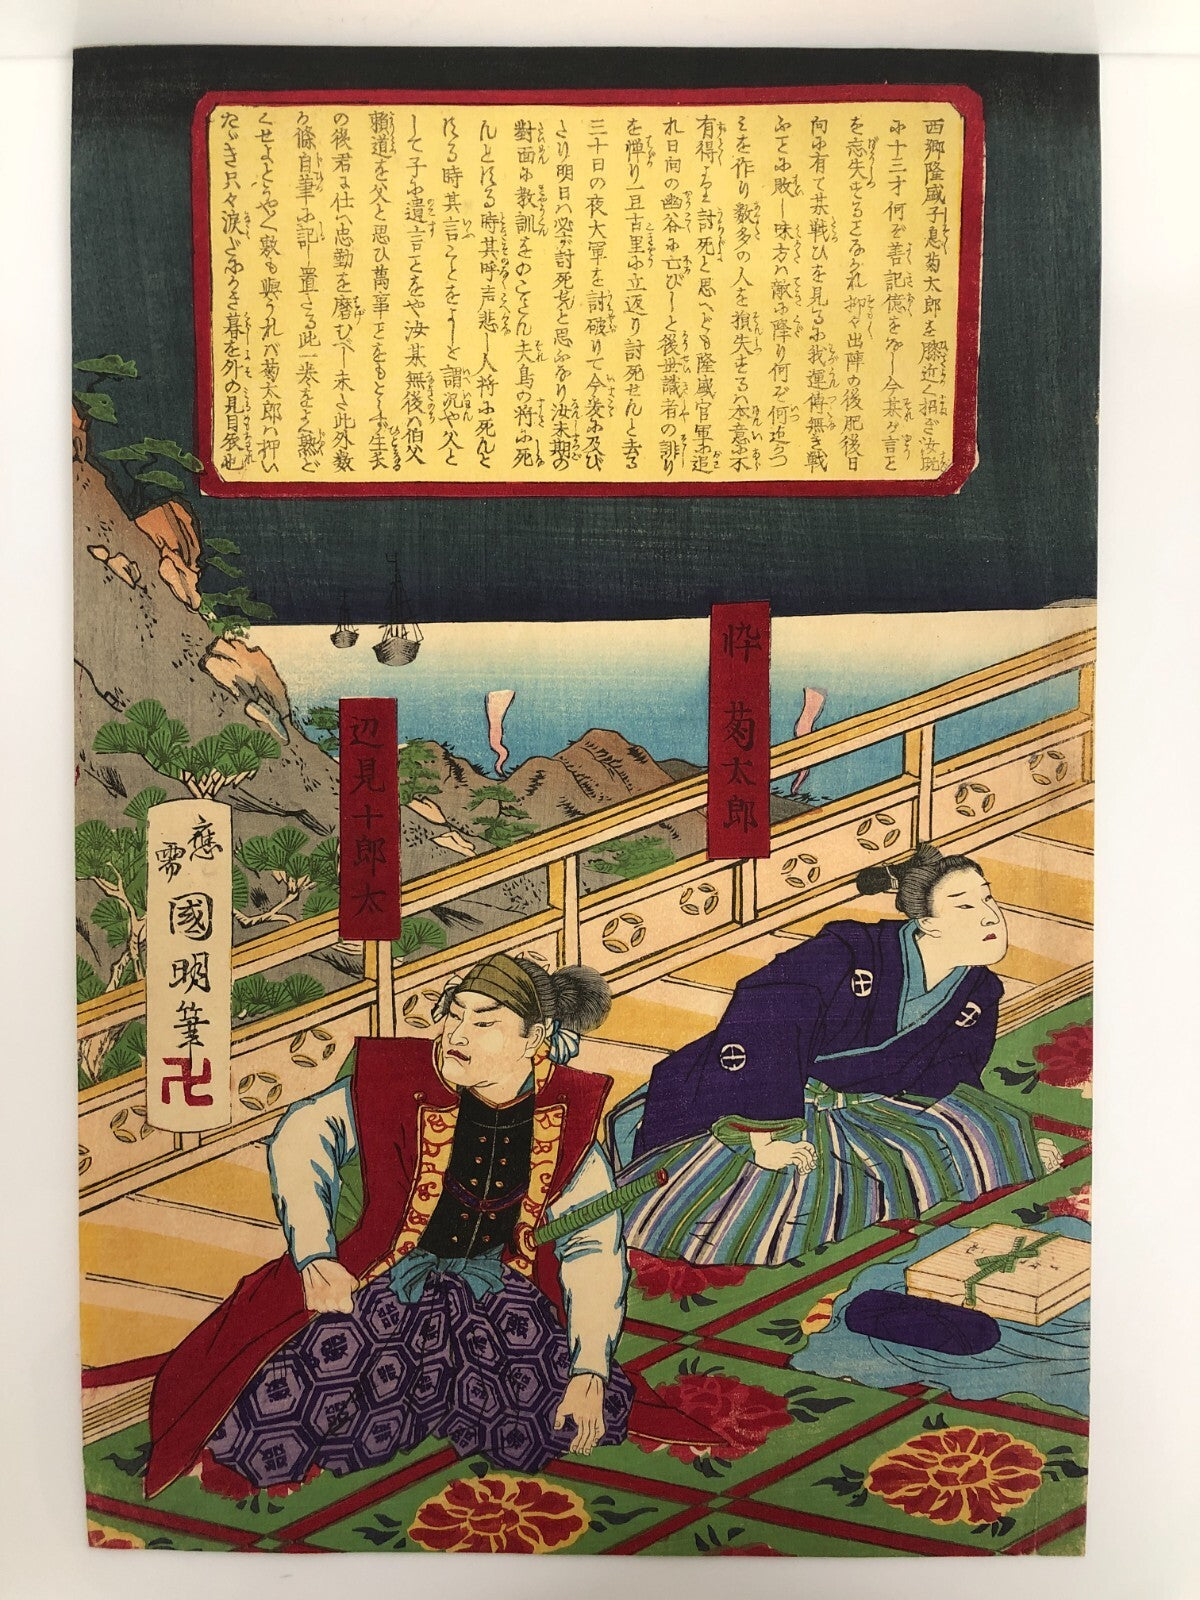 西郷隆盛子息菊太郎を膝近く招ぎ汝既
に十三才何ぞ善記憶をなし今某が言と
を忘失するとなかれ抑や出陣の後肥後日
向に有て某戦ひを見るに我運傳無き戦
ふとに敗し味方ハ敵に降り何ぞ何迄
を作り数多の人を損失するハ本意に不
有得る上討死と思へども隆盛官軍に追
れ日向の幽谷に亡びしと後世識者の誹り
を憚り一旦古里に立返り討死せんと去る
三十日の夜大軍を討破りて今爰に及び
たり明日ハ必討死んと思ふなり汝末期の
對面に教訓をのこさん夫鳥の将に死
んとする時其呼声悲し人将に死んと
する時其言ことをよしと謂況や父と
して子に遺言ことをや汝某無後ハ伯父
頼道を父と思ひ萬事
の後君に仕へ忠勤を磨むべし未だ此外数
ヶ條自筆に記し置たる此一巻をよく熟ど
くせよとやく敷も與うれバ菊太郎ハ押い
たゞき只々涙
忰 菊太郎
辺見十郎太
應需
國明筆
卍